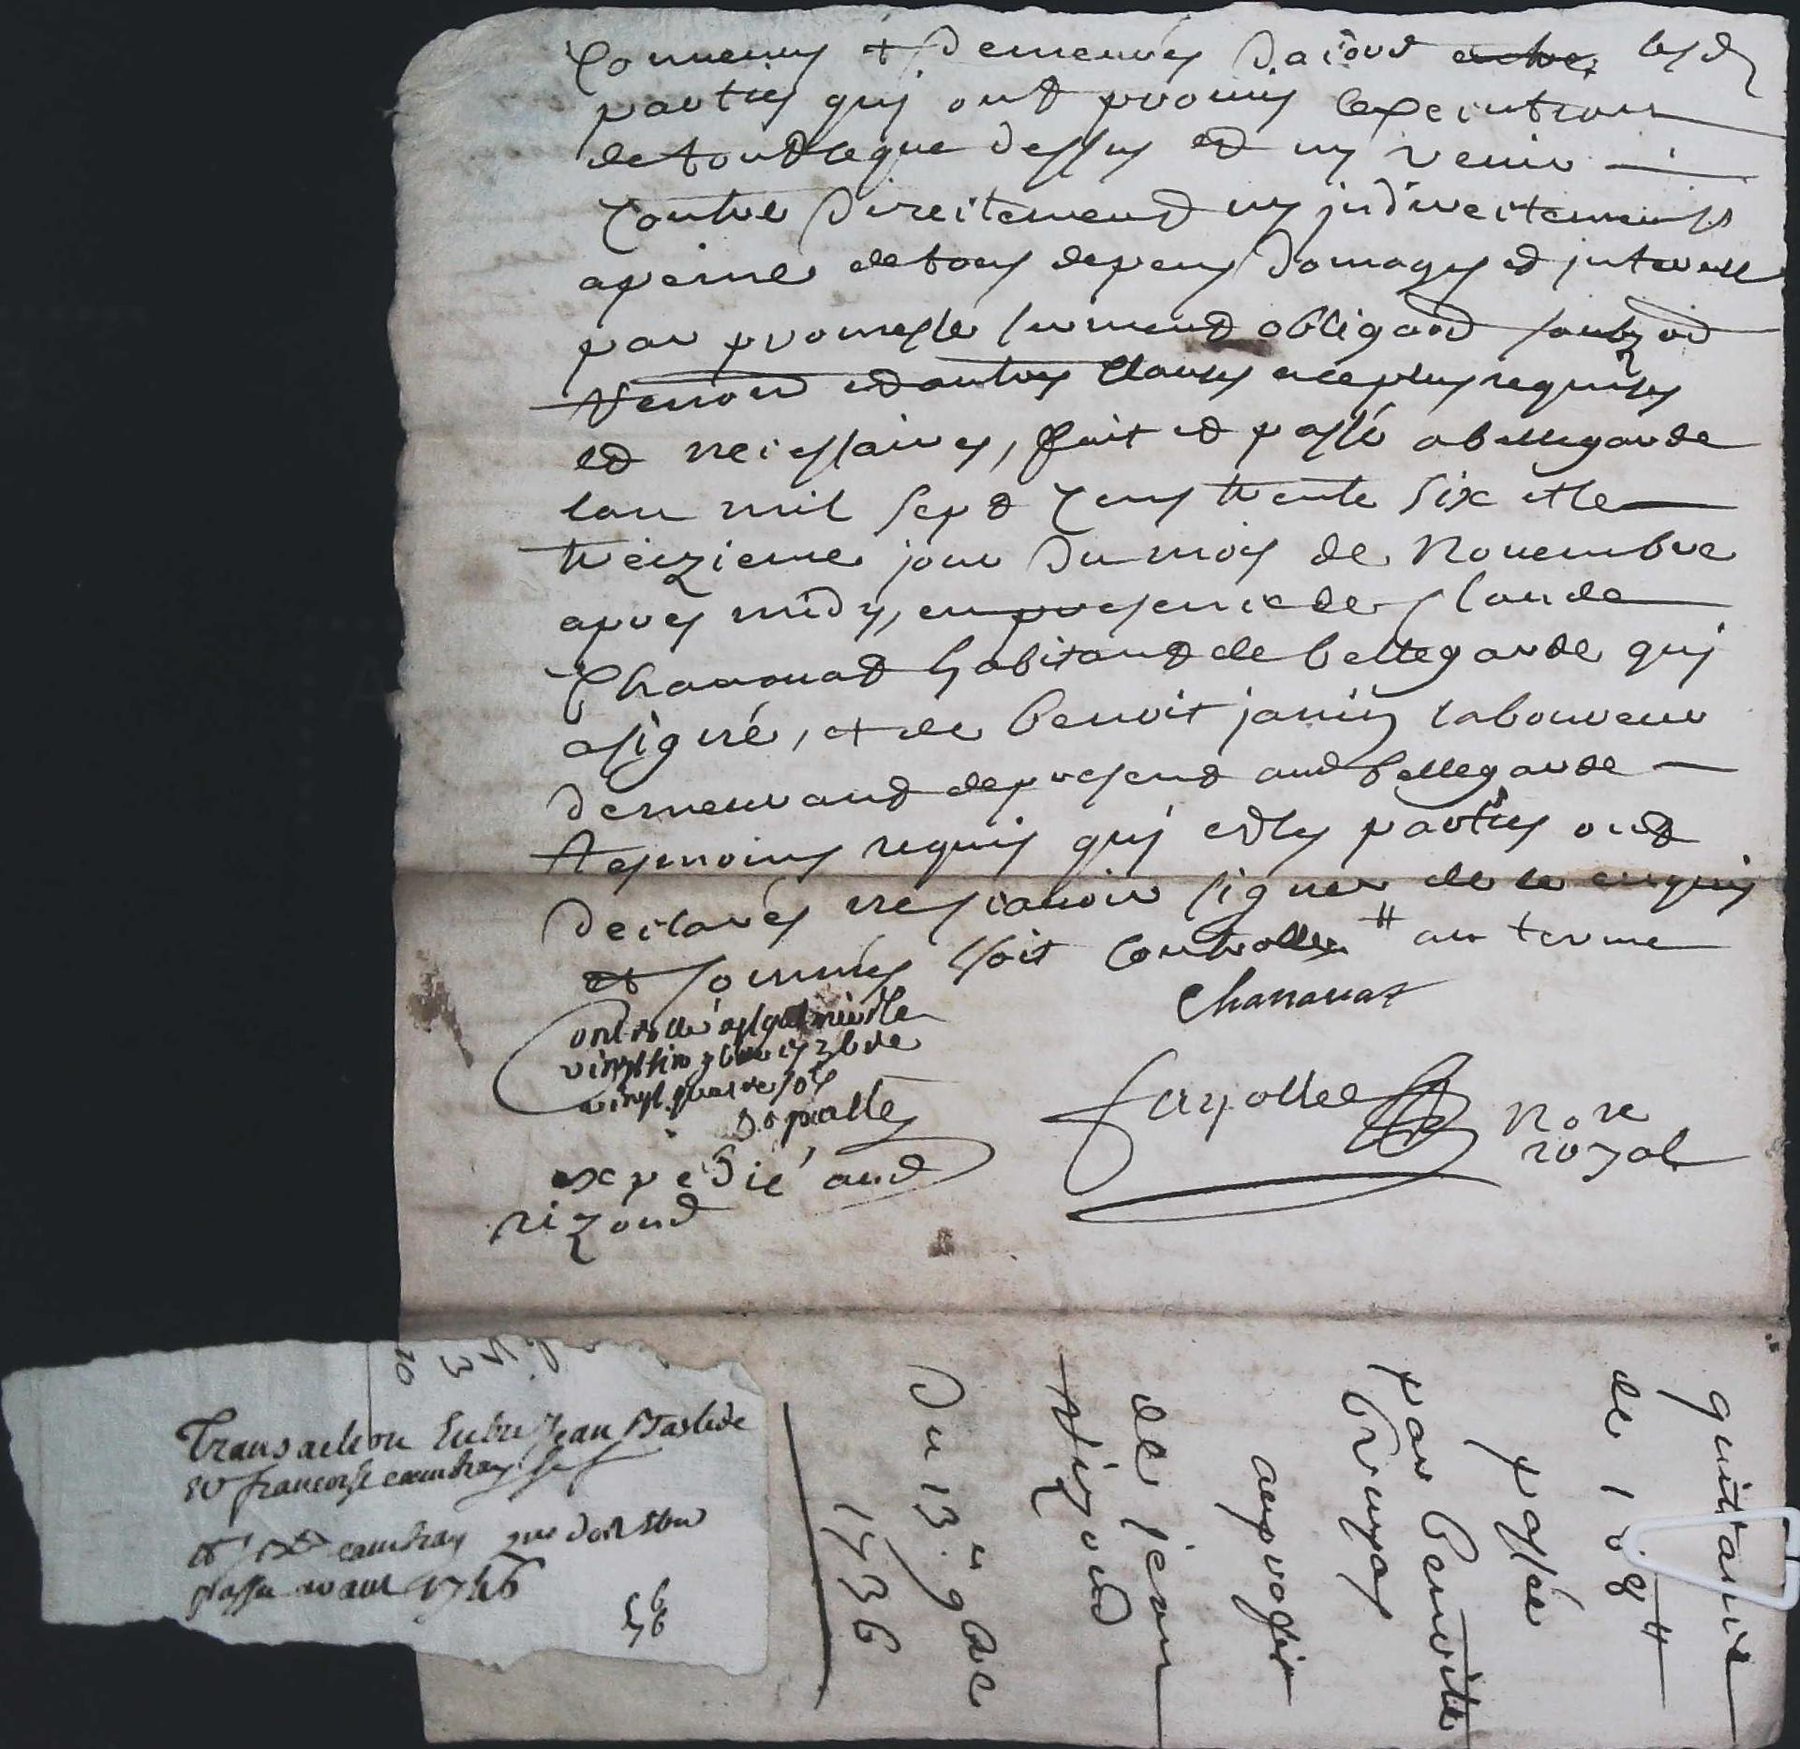 Convenus et demeurés d'acord lesd
parties quj ont promis l'execution
de tout ceque dessus et ny venir
Contre directement ny jndirectement
apeine de tous depens domages et jnterest
par promesse serment obligaōn soubzōn
Renoōn et autres clauses aceplus requises
et necessaires, fait et passé abellegarde
lan mil sept cens trente six et le
treizieme jour du mois de Novembre
apres midy, enpresence de Claude
Chanauat habitant de bellegarde quj
asigné, et de benoit janin laboureur
demeurant depresent aud bellegarde
tesmoins requis quj et les parties ont
declarés nescavoir signer de ce enquis
et sommés soit Controllé # au terme
Chanauat
Controllé le
vingt
vingt quatre sols
expedié aud
rizond
fayolle Nore
royal
quittance
de 108 #
passée
par benoite
au profit
de jean
rizond
Du 13e 9bre
1736
Transaction Entre Jean
et francoise cambray
cambray que doit etre
passe avant 1746
56